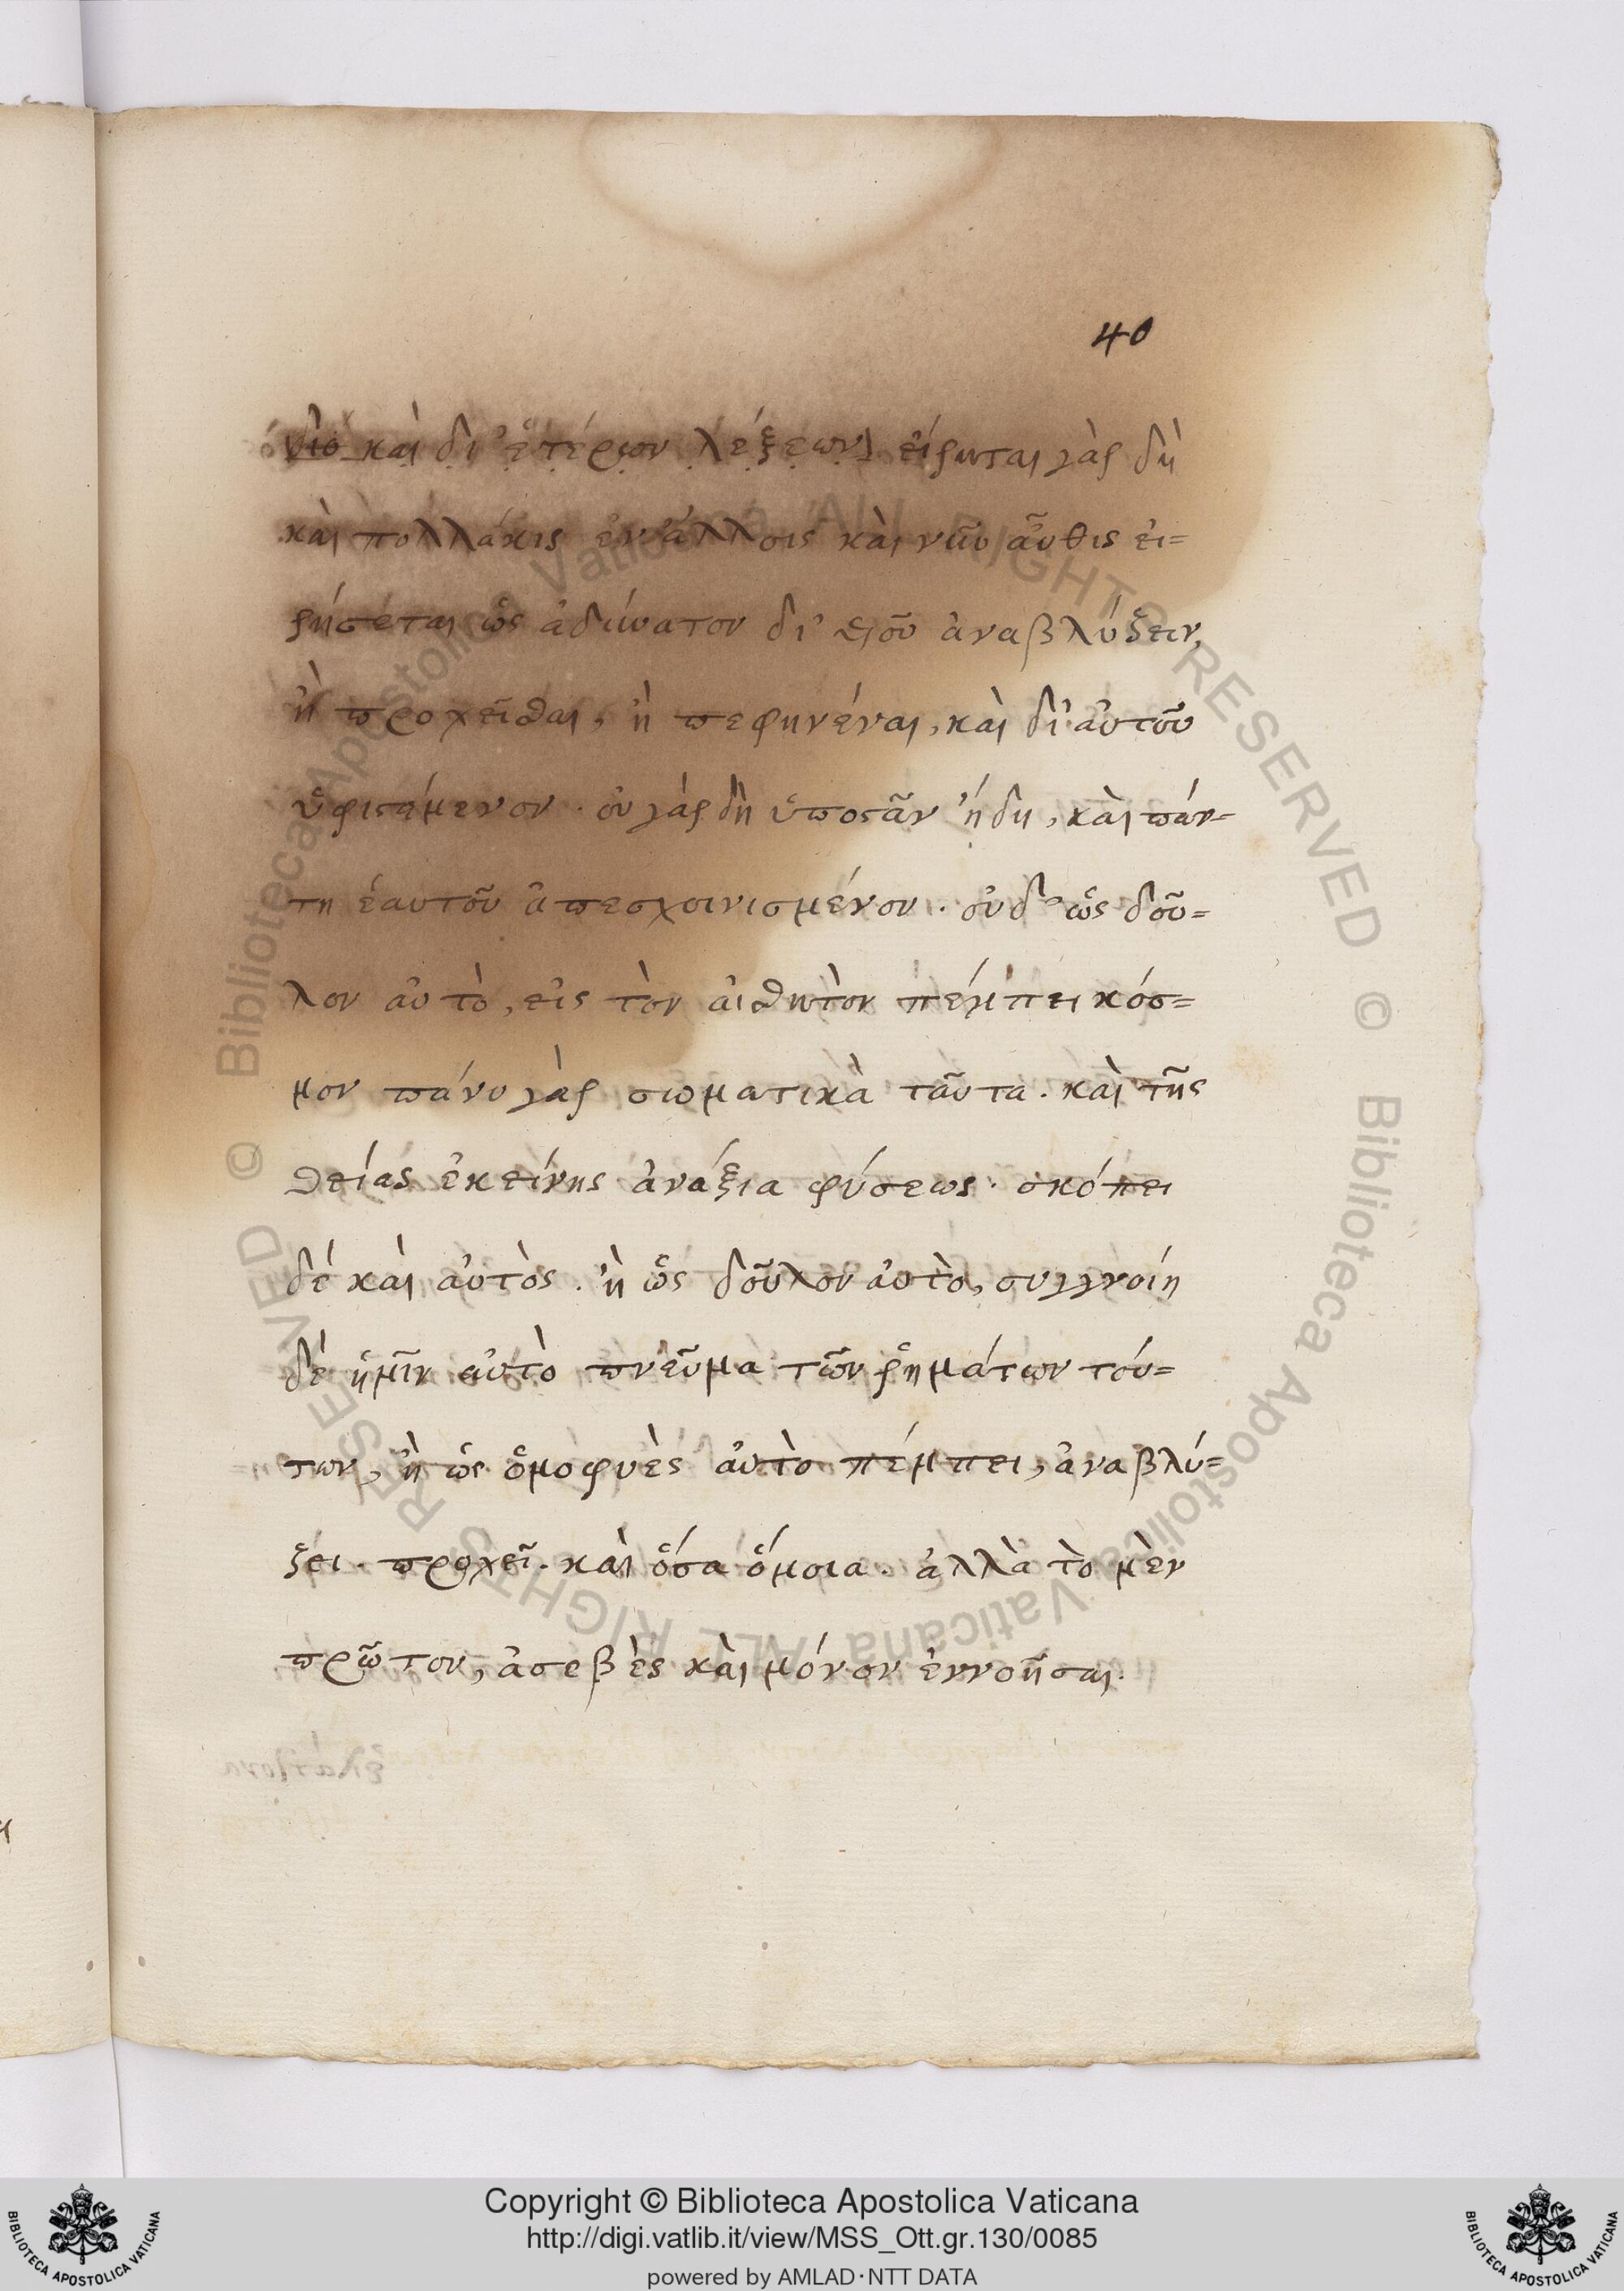 40
διὸ καὶ δι' ἑτέρων λέξεων εἴρηται γὰρ δὴ
καὶ πολλάκις ἐν ἄλλοις καὶ νῦν αὖθις εἰ=
ρήσεται ὡς ἀδύνατον δι' υἱοῦ ἀναβλύζειν,
ἢ προχεῖσθαι, ἢ πεφηνέναι, καὶ δι' αὐτοῦ
ὑφιστάμενον. οὐ γὰρ δὴ ὑποστὰν ἤδη, καὶ πάν=
τη ἑαυτοῦ ἀπεσχοινισμένον. οὐδ' ὡς δοῦ=
λον αὐτὸ, εἰς τὸν αἰσθητὸν πέμπει κόσ=
μον πάνυ γὰρ σωματικὰ ταῦτα. καὶ τῆς
θείας ἐκείνης ἀνάξια φύσεως. σκόπει
δέ καὶ αὐτὸς. ἢ ὡς δοῦλον αὐτὸ, συγγνοίη
δέ ἡμῖν αὐτὸ πνεῦμα τῶν ῥημάτων τού=
των, ἢ ὡς ὁμοφυὲς αὐτὸ πέμπει, ἀναβλύ=
ζει. προχεῖ. καὶ ὅσα ὅμοια. ἀλλὰ τὸ μὲν
πρῶτον, ἀσεβὲς καὶ μόνον ἐννοῆσαι.
© Biblioteca Apostolica Vaticana ALL RIGHTS RESERVED
© Biblioteca Apostolica Vaticana ALL RIGHTS RESERVED
BIBLIOTECA APOSTOLICA VATICANA
Copyright © Biblioteca Apostolica Vaticana
http://digi.vatlib.it/view/MSS_Ott.gr.130/0085
powered by AMLAD·NTT DATA
BIBLIOTECA APOSTOLICA VATICANA